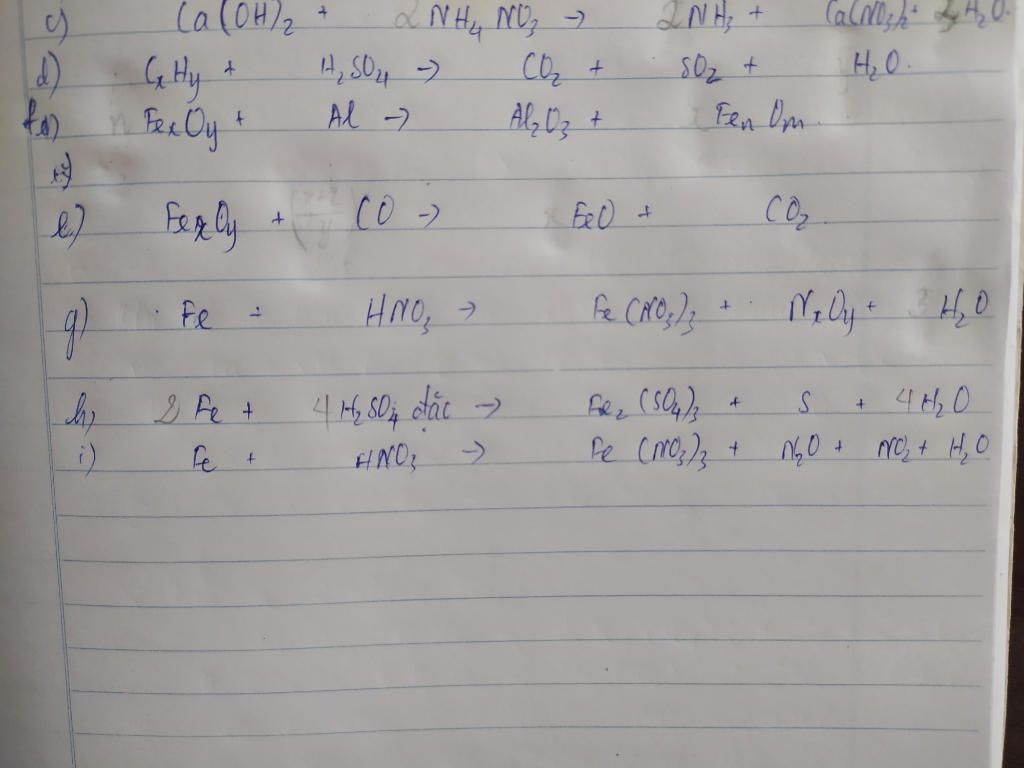 c) Ca(OH)₂ + 2NH₄NO₃ → 2NH₃ + Ca(NO₃)₂ + 2H₂O.
d) CₓHy + H₂SO₄ → CO₂ + SO₂ + H₂O.
FeₓOy + Al → Al₂O₃ + FeₙOₘ.
e) FeₓOy + CO → FeO + CO₂.
g) Fe + HNO₃ → Fe(NO₃)₃ + NₓOy + H₂O
h) 2Fe + 4H₂SO₄ đặc → Fe₂(SO₄)₃ + S + 4H₂O
i) Fe + HNO₃ → Fe(NO₃)₃ + N₂O + NO₂ + H₂O